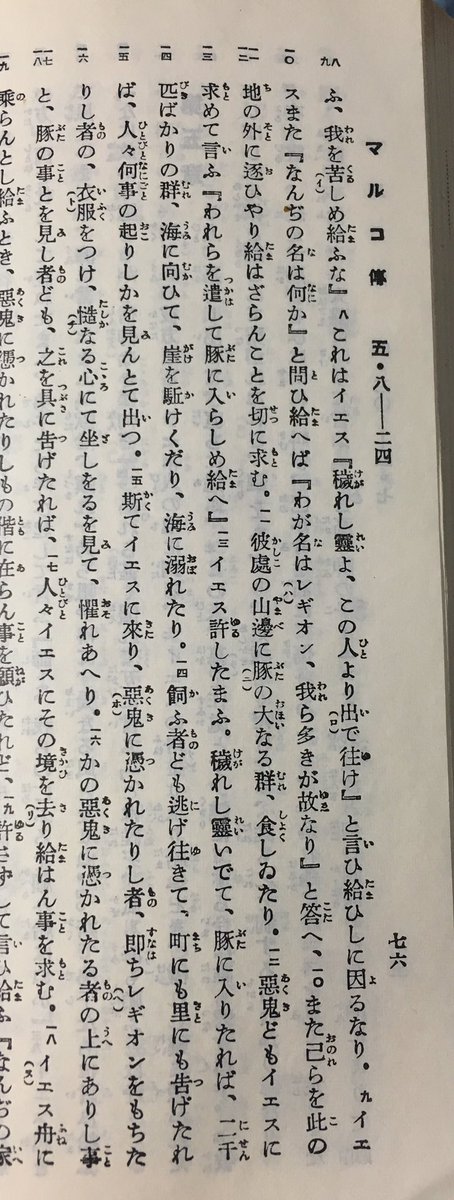 マルコ傳 五・八―二四
七六
ふ、我を苦しめ給ふな』八これはイエス『穢れし靈よ、この人より出で往け』と言ひ給ひしに因るなり。九イエ
スまた『なんぢの名は何か』と問ひ給へば『わが名はレギオン、我ら多きが故なり』と答へ、一〇また己らを此の
地の外に逐ひやり給はざらんことを切に求む。一一彼處の山邊に豚の大なる群、食しゐたり。一二惡鬼どもイエスに
求めて言ふ『われらを遣して豚に入らしめ給へ』一三イエス許したまふ。穢れし靈いでて、豚に入りたれば、二千
匹ばかりの群、海に向ひて、崖を駈けくだり、海に溺れたり。一四飼ふ者ども逃げ往きて、町にも里にも告げたれ
ば、人々何事の起りしかを見んとて出づ。一五斯てイエスに來り、惡鬼に憑かれたりし者、即ちレギオンをもちた
りし者の、衣服をつけ、慥なる心にて坐しをるを見て、懼れあへり。一六かの惡鬼に憑かれたる者の上にありし事
と、豚の事とを見し者ども、之を具に告げたれば、一七人々イエスにその境を去り給はん事を求む。一八イエス舟に
乘らんとし給ふとき、惡鬼に憑かれたりしもの偕に在らん事を願ひたれど、一九許さずして言ひ給ふ『なんぢの家